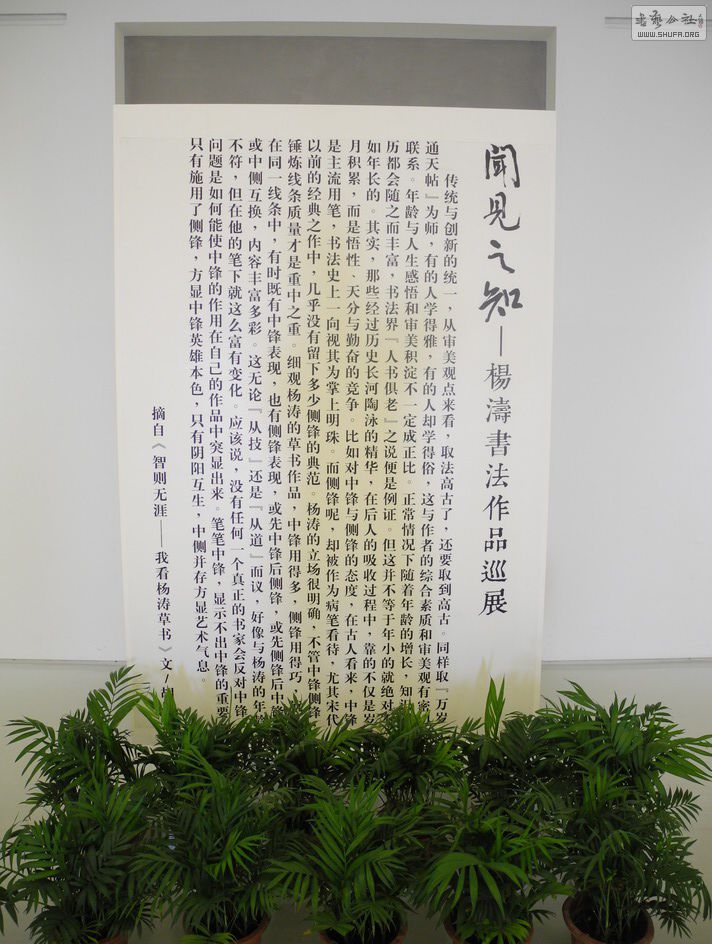 書藝公社
WWW.SHUFA.ORG
聞見之知—楊濤書法作品巡展
传统与创新的统一，从审美观点来看，取法高古了，还要取到高古。同样取『万岁
通天帖』为师，有的人学得雅，有的人却学得俗，这与作者的综合素质和审美观有密
联系。年龄与人生感悟和审美积淀不一定成正比。正常情况下随着年龄的增长，知识
历都会随之而丰富，书法界『人书俱老』之说便是例证。但这并不等于年小的就绝对
如年长的。其实，那些经过历史长河陶泳的精华，在后人的吸收过程中，靠的不仅是岁
月积累，而是悟性、天分与勤奋的竞争。比如对中锋与侧锋的态度，在古人看来，中锋
是主流用笔，书法史上一向视其为掌上明珠。而侧锋呢，却被作为病笔看待，尤其宋代
以前的经典之作中，几乎没有留下多少侧锋的典范。杨涛的立场很明确，不管中锋侧锋
锤炼线条质量才是重中之重。细观杨涛的草书作品，中锋用得多，侧锋用得巧，
在同一线条中，有时既有中锋表现，也有侧锋表现，或先中锋后侧锋，或先侧锋后中锋
或中侧互换，内容丰富多彩。这无论『从技』还是『从道』而议，好像与杨涛的年龄
不符，但在他的笔下就这么富有变化。应该说，没有任何一个真正的书家会反对中锋
问题是如何能使中锋的作用在自己的作品中突显出来。笔笔中锋，显示不出中锋的重要
只有施用了侧锋，方显中锋英雄本色，只有阴阳互生，中侧并存方显艺术气息。
摘自《智则无涯——我看杨涛草书》文/